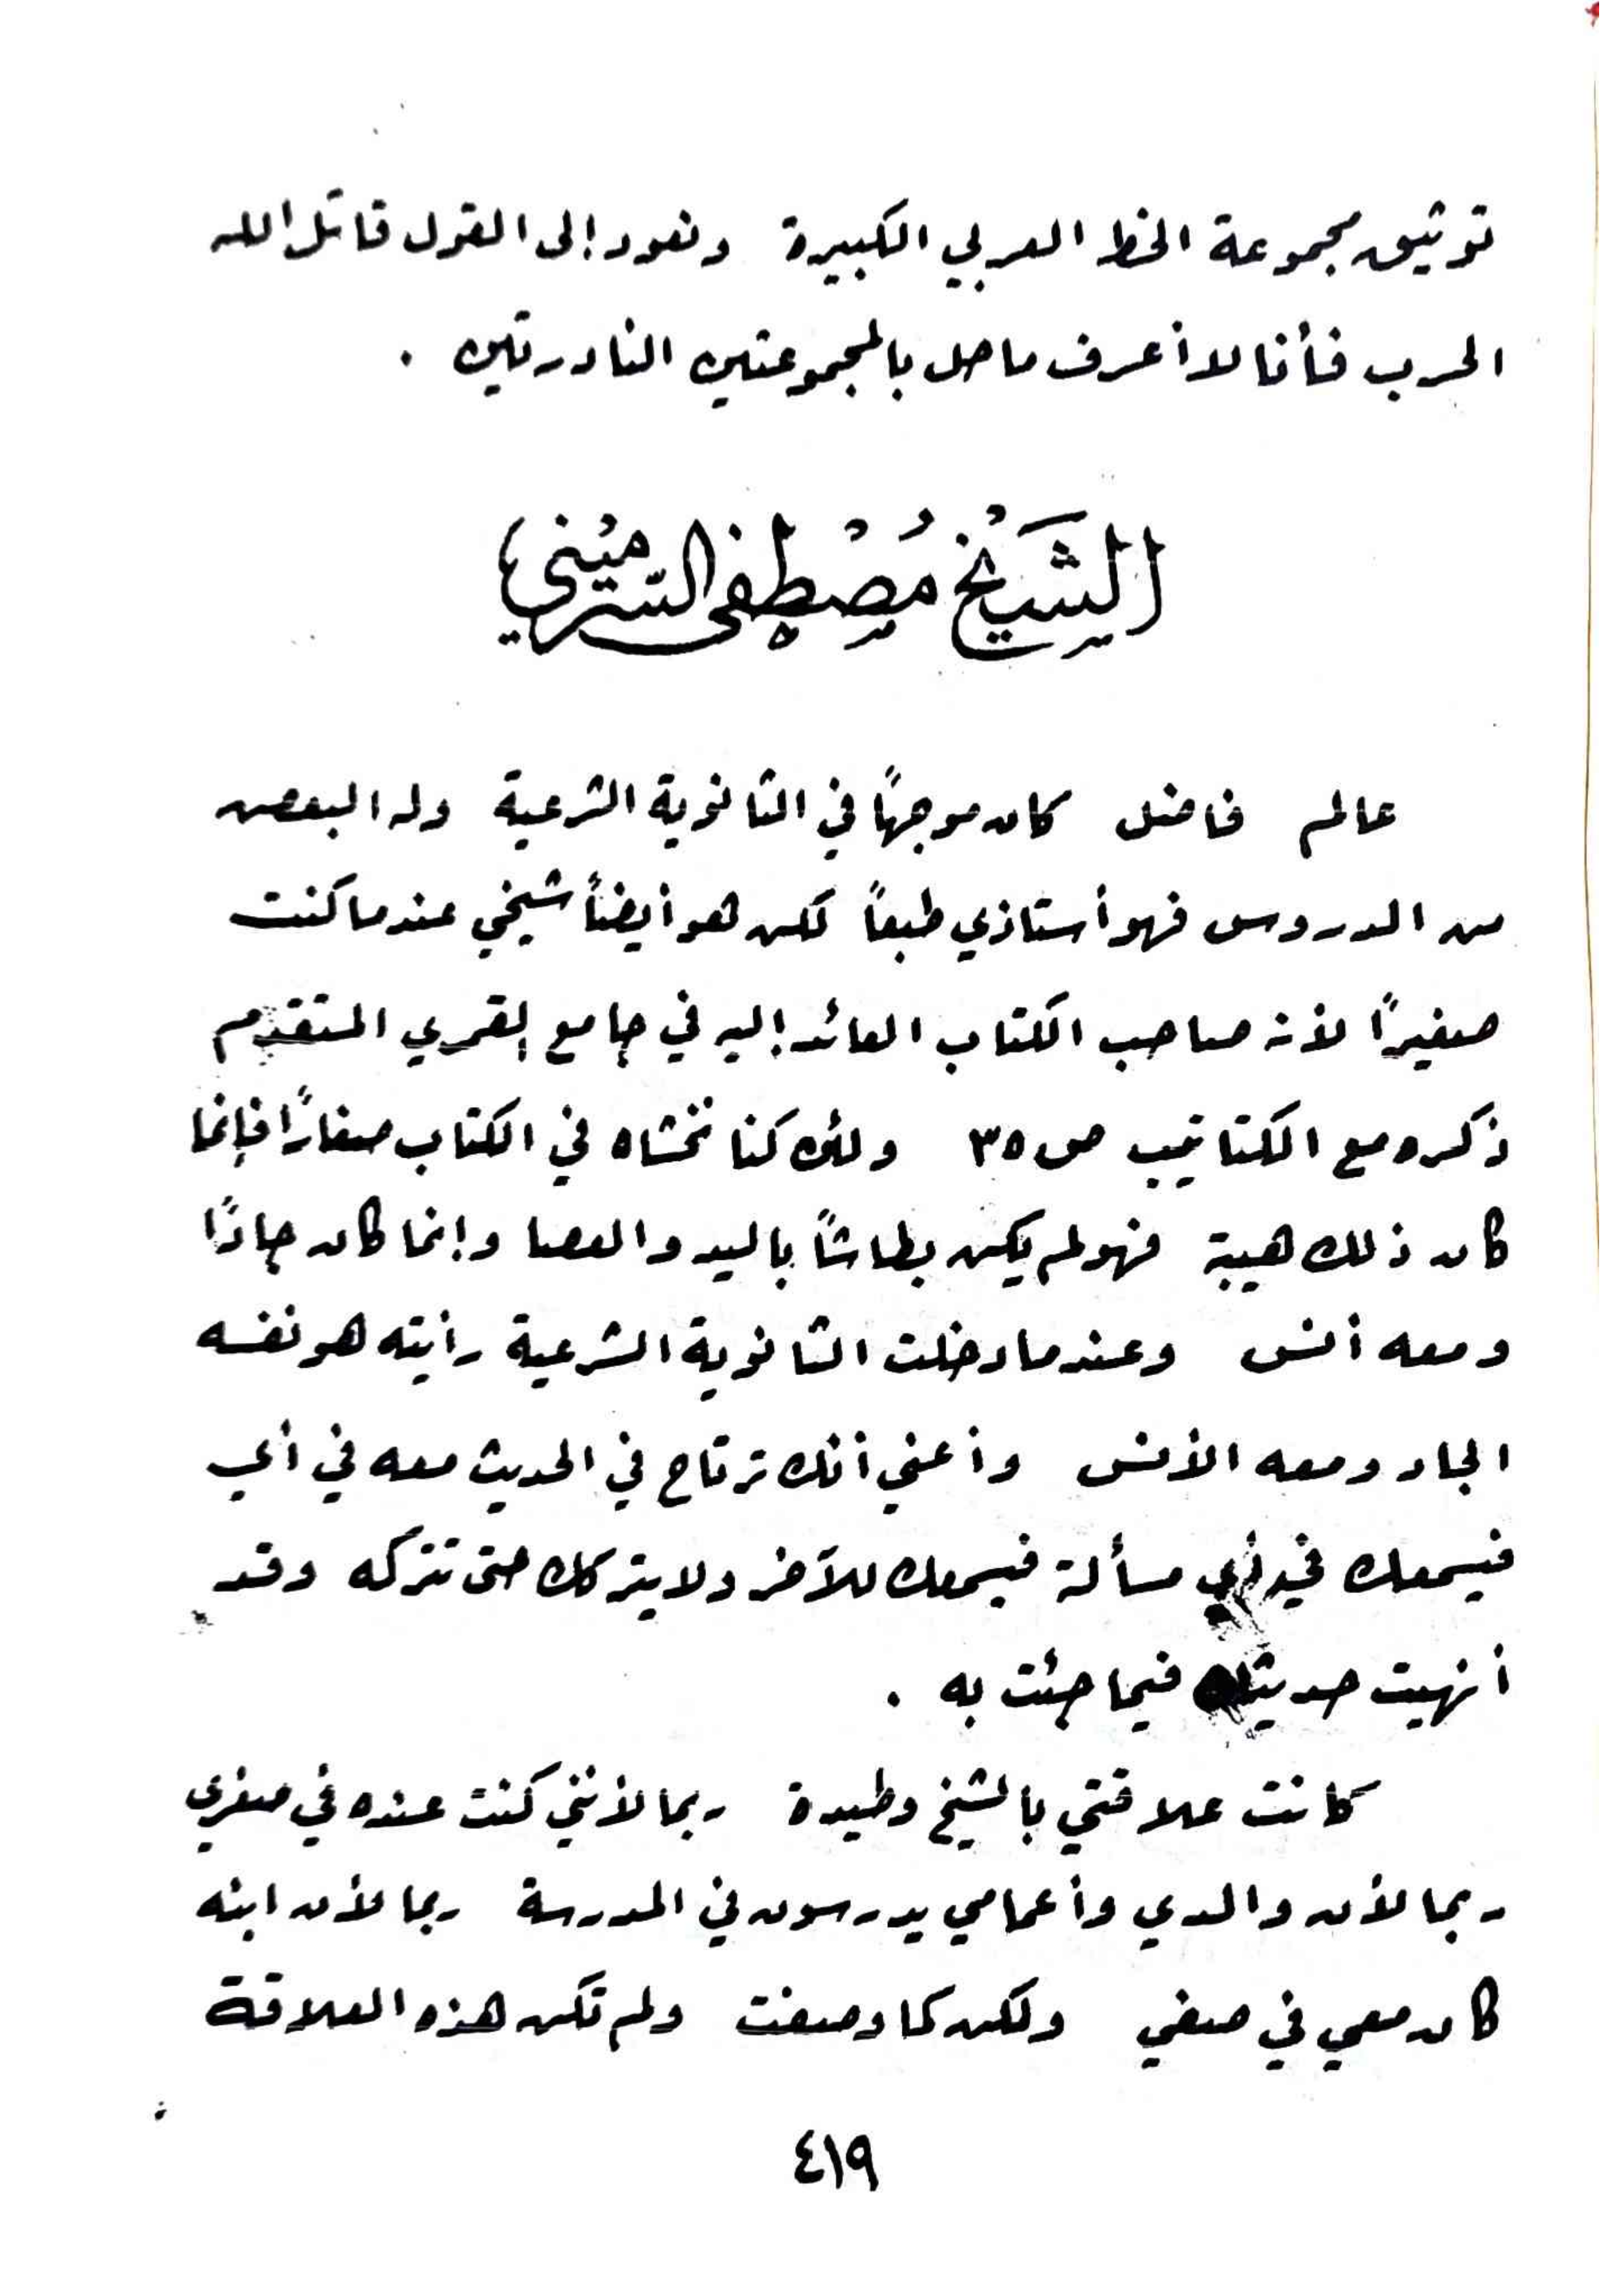 توثيق مجموعة الخط العربي الكبيرة ونعود إلى القول قاتل الله
الحرب فأنا لا أعرف ما حل بالمجموعتين النادرتين .
الشَّيْخ مُصْطفى السّرمِيْني
عالم فاضل كان موجهًا في الثانوية الشرعية وله البعض
من الدروس فهو أستاذي طبعاً لكن هو أيضاً شيخي عندما كنت
صغيرًا لأنه صاحب الكتاب العائد إليه في جامع القمري المتقدم
ذكره مع الكتاتيب ص ٣٥ ولئن كنا نخشاه في الكتاب صغارًا فإنما
كان ذلك هيبة فهو لم يكن بطاشاً باليد والعصا وإنما كان جادًا
ومعه أنس وعندما دخلت الثانوية الشرعية رأيته هو نفسه
الجاد ومعه الأنس وأعني أنك ترتاح في الحديث معه في أي
فيسمعك في أي مسألة فيسمعك للآخر ولا يتركك حتى تتركه وقد
أنهيت حديثك فيما جئت به .
كانت علاقتي بالشيخ وطيدة ربما لأنني كنت عنده في صغري
ربما لأن والدي وأعمامي يدرسون في المدرسة ربما لأن ابنه
كان معي في صفي ولكن كما وصفت ولم تكن هذه العلاقة
٤١٩